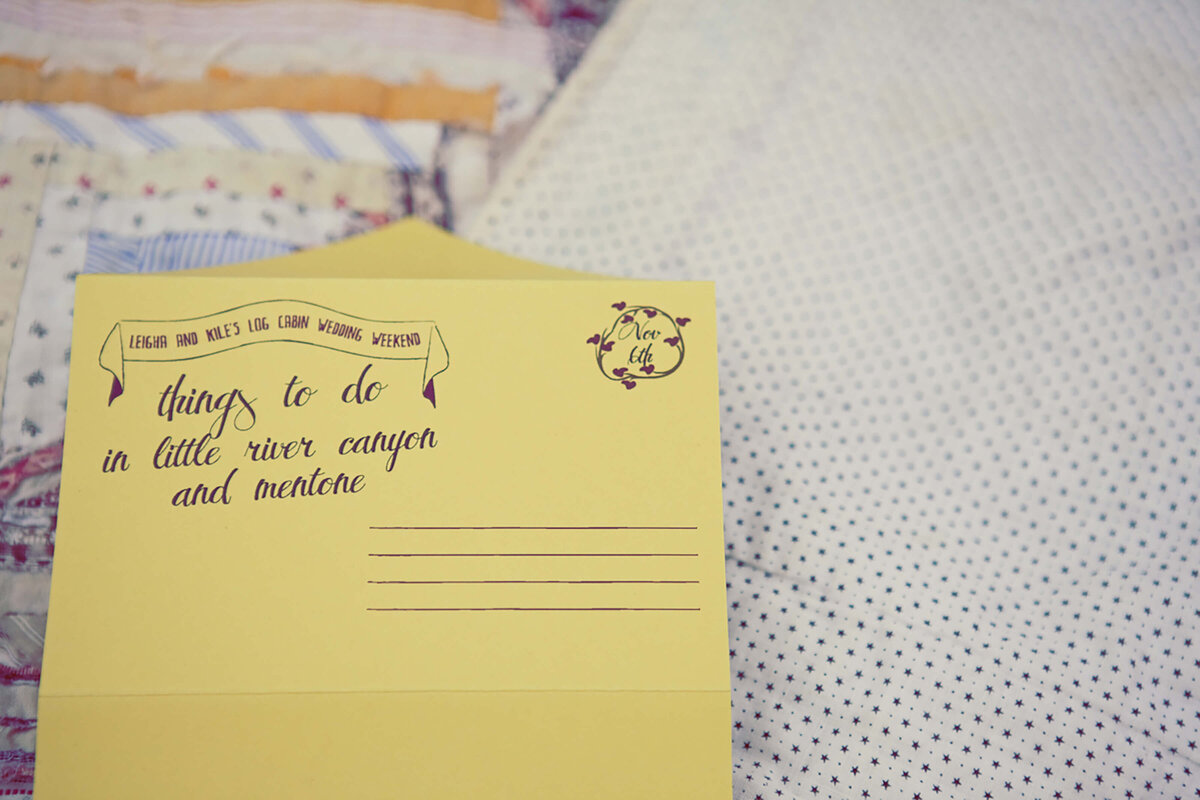 LEIGHA AND KILE'S LOG CABIN WEDDING WEEKEND
things to do
in little river canyon
and mentone
Nov
6th